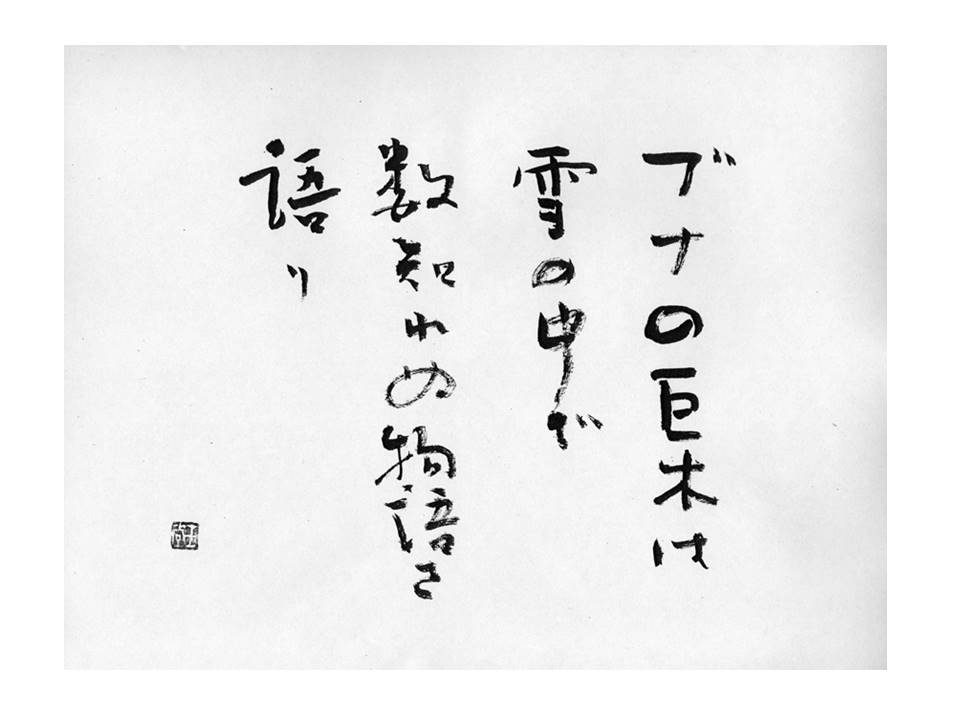 ブナの巨木は
雪の中で
数知れぬ物語を
語り